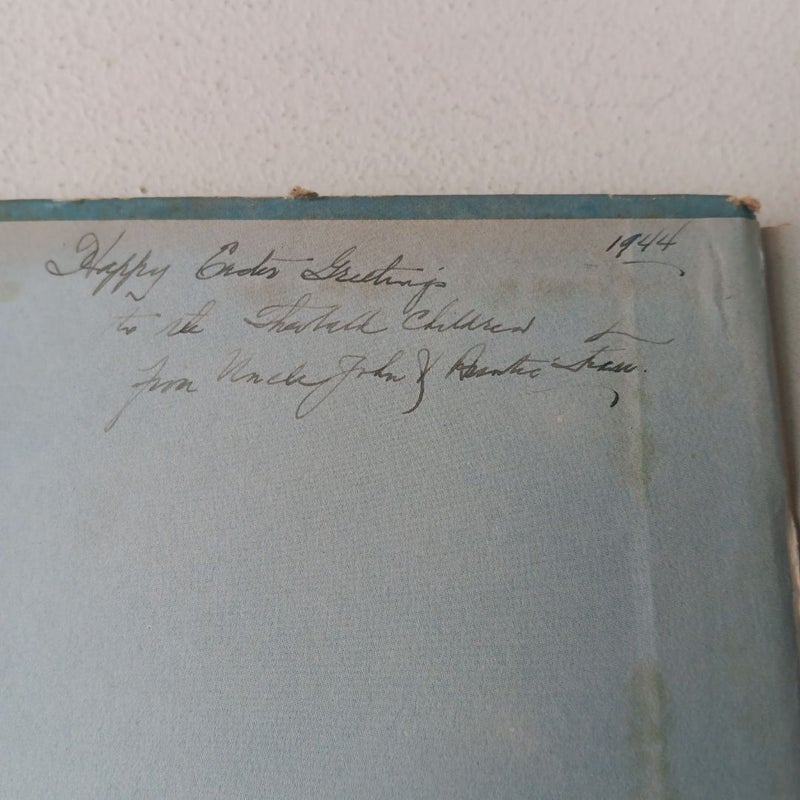 1944
Happy Easter Greetings
to the Theobald Children
from Uncle John & Auntie